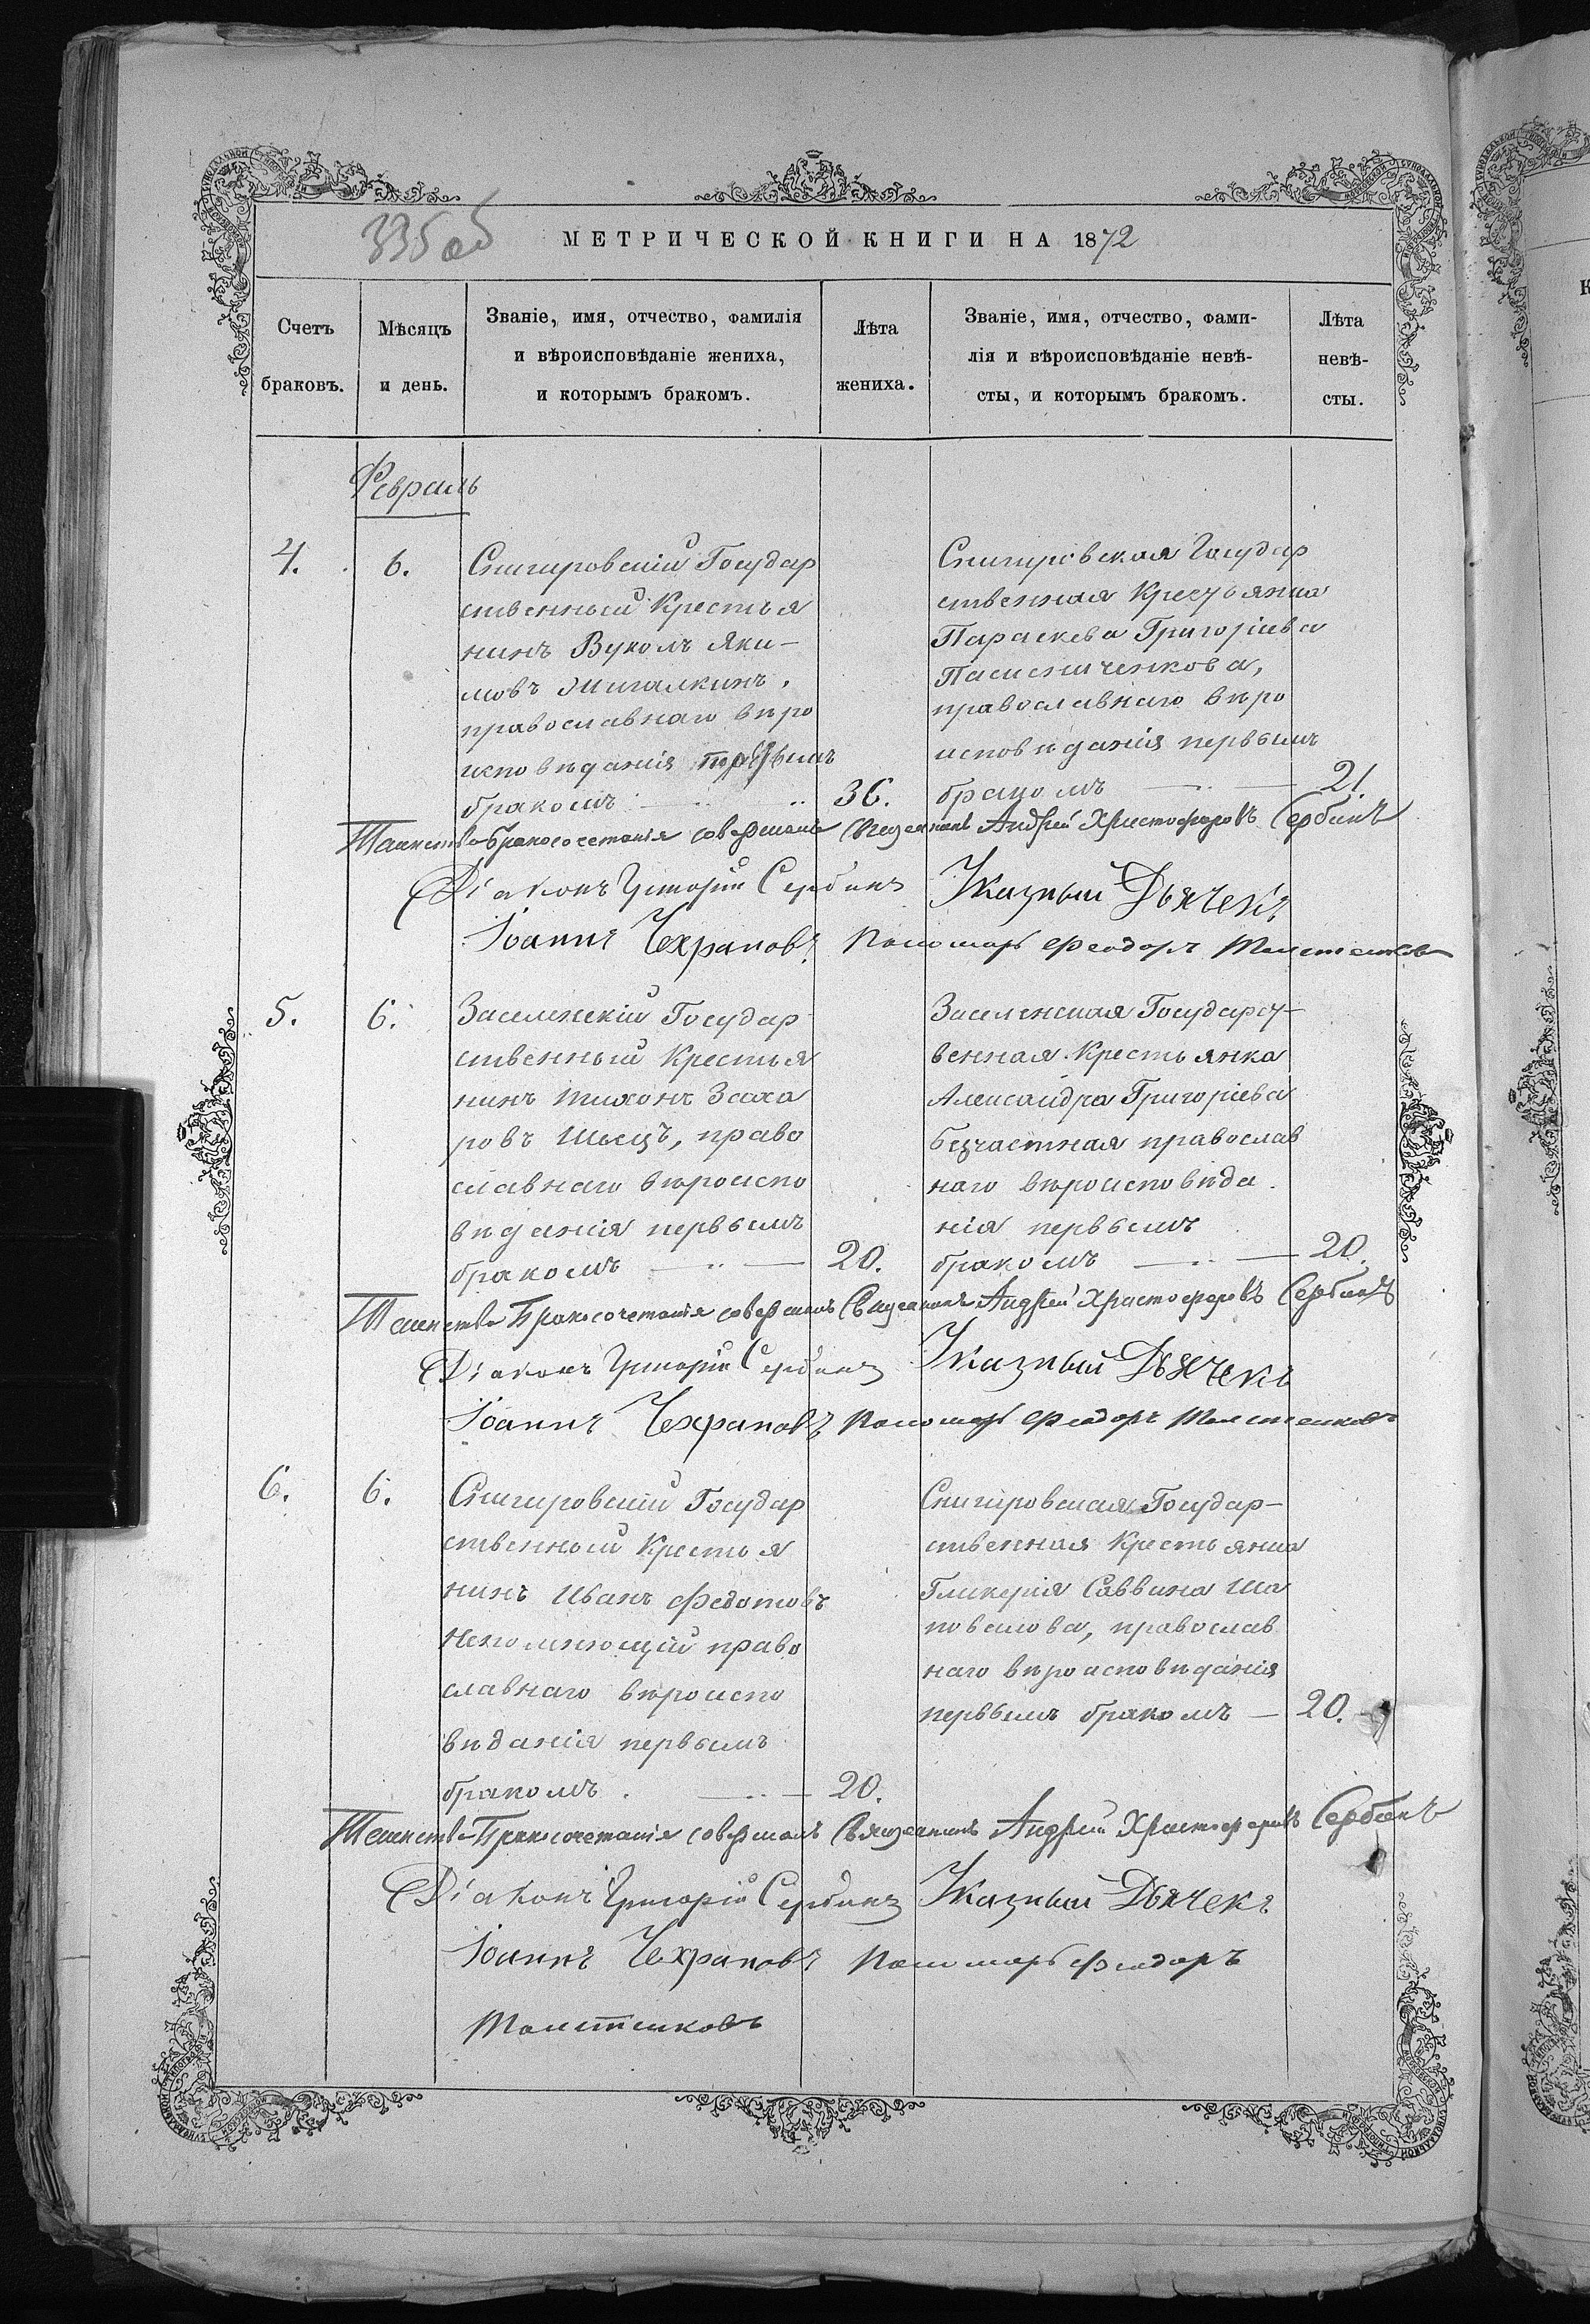 335 об
МЕТРИЧЕСКОЙ КНИГИ НА 1872
Счетъ браковъ.
Мѣсяцъ и день.
Званіе, имя, отчество, фамилія
и вѣроисповѣданіе жениха,
и которымъ бракомъ.
Лѣта
жениха.
Званіе, имя, отчество, фами-
лія и вѣроисповѣданіе невѣ-
сты, и которымъ бракомъ.
Лѣта
невѣ-
сты.
Февраль
4.
6.
Снигировскій Государ
ственный Крестья
нинъ Вуколъ Яки-
мовъ
православнаго вѣро
исповѣданія
бракомъ
36.
Снигировская Государ
ственная Крестьянка
Параскева Григоріева
Пасисниченкова,
православнаго вѣро
исповѣданія первымъ
бракомъ
21.
Таинство Бракосочетанія совершалъ Священникъ Андрей Христофоровъ Сербинъ
Діаконъ Григорій Сербинъ Указный Дьячекъ
Іоаннъ Чехрановъ Пономарь Феодоръ
5.
6.
Засельскій Государ
ственный Крестья
нинъ Тихонъ Заха
ровъ Швецъ, право
славнаго вѣроиспо
вѣданія первымъ
бракомъ
20.
Засельская Государст-
венная Крестьянка
Александра Григоріева
Безчастная православ
наго вѣроисповѣда
нія первымъ
бракомъ
20.
Таинство Бракосочетанія совершалъ Священникъ Андрей Христофоровъ Сербинъ
Діаконъ Григорій Сербинъ Указный Дьячекъ
Іоаннъ Чехрановъ Пономарь Феодоръ
6.
6.
Снигировскій Государ
ственный Крестья
нинъ Иванъ Федотовъ
Непомнющій право
славнаго вѣроиспо
вѣданія первымъ
бракомъ
20.
Снигировская Государ-
ственная Крестьянка
Гликерія Саввина Ша
повалова, православ
наго вѣроисповѣданія
первымъ бракомъ
20.
Таинство Бракосочетанія совершалъ Священникъ Андрей Христофоровъ Сербинъ
Діаконъ Григорій Сербинъ Указный Дьячекъ
Іоаннъ Чехрановъ Пономарь Феодоръ